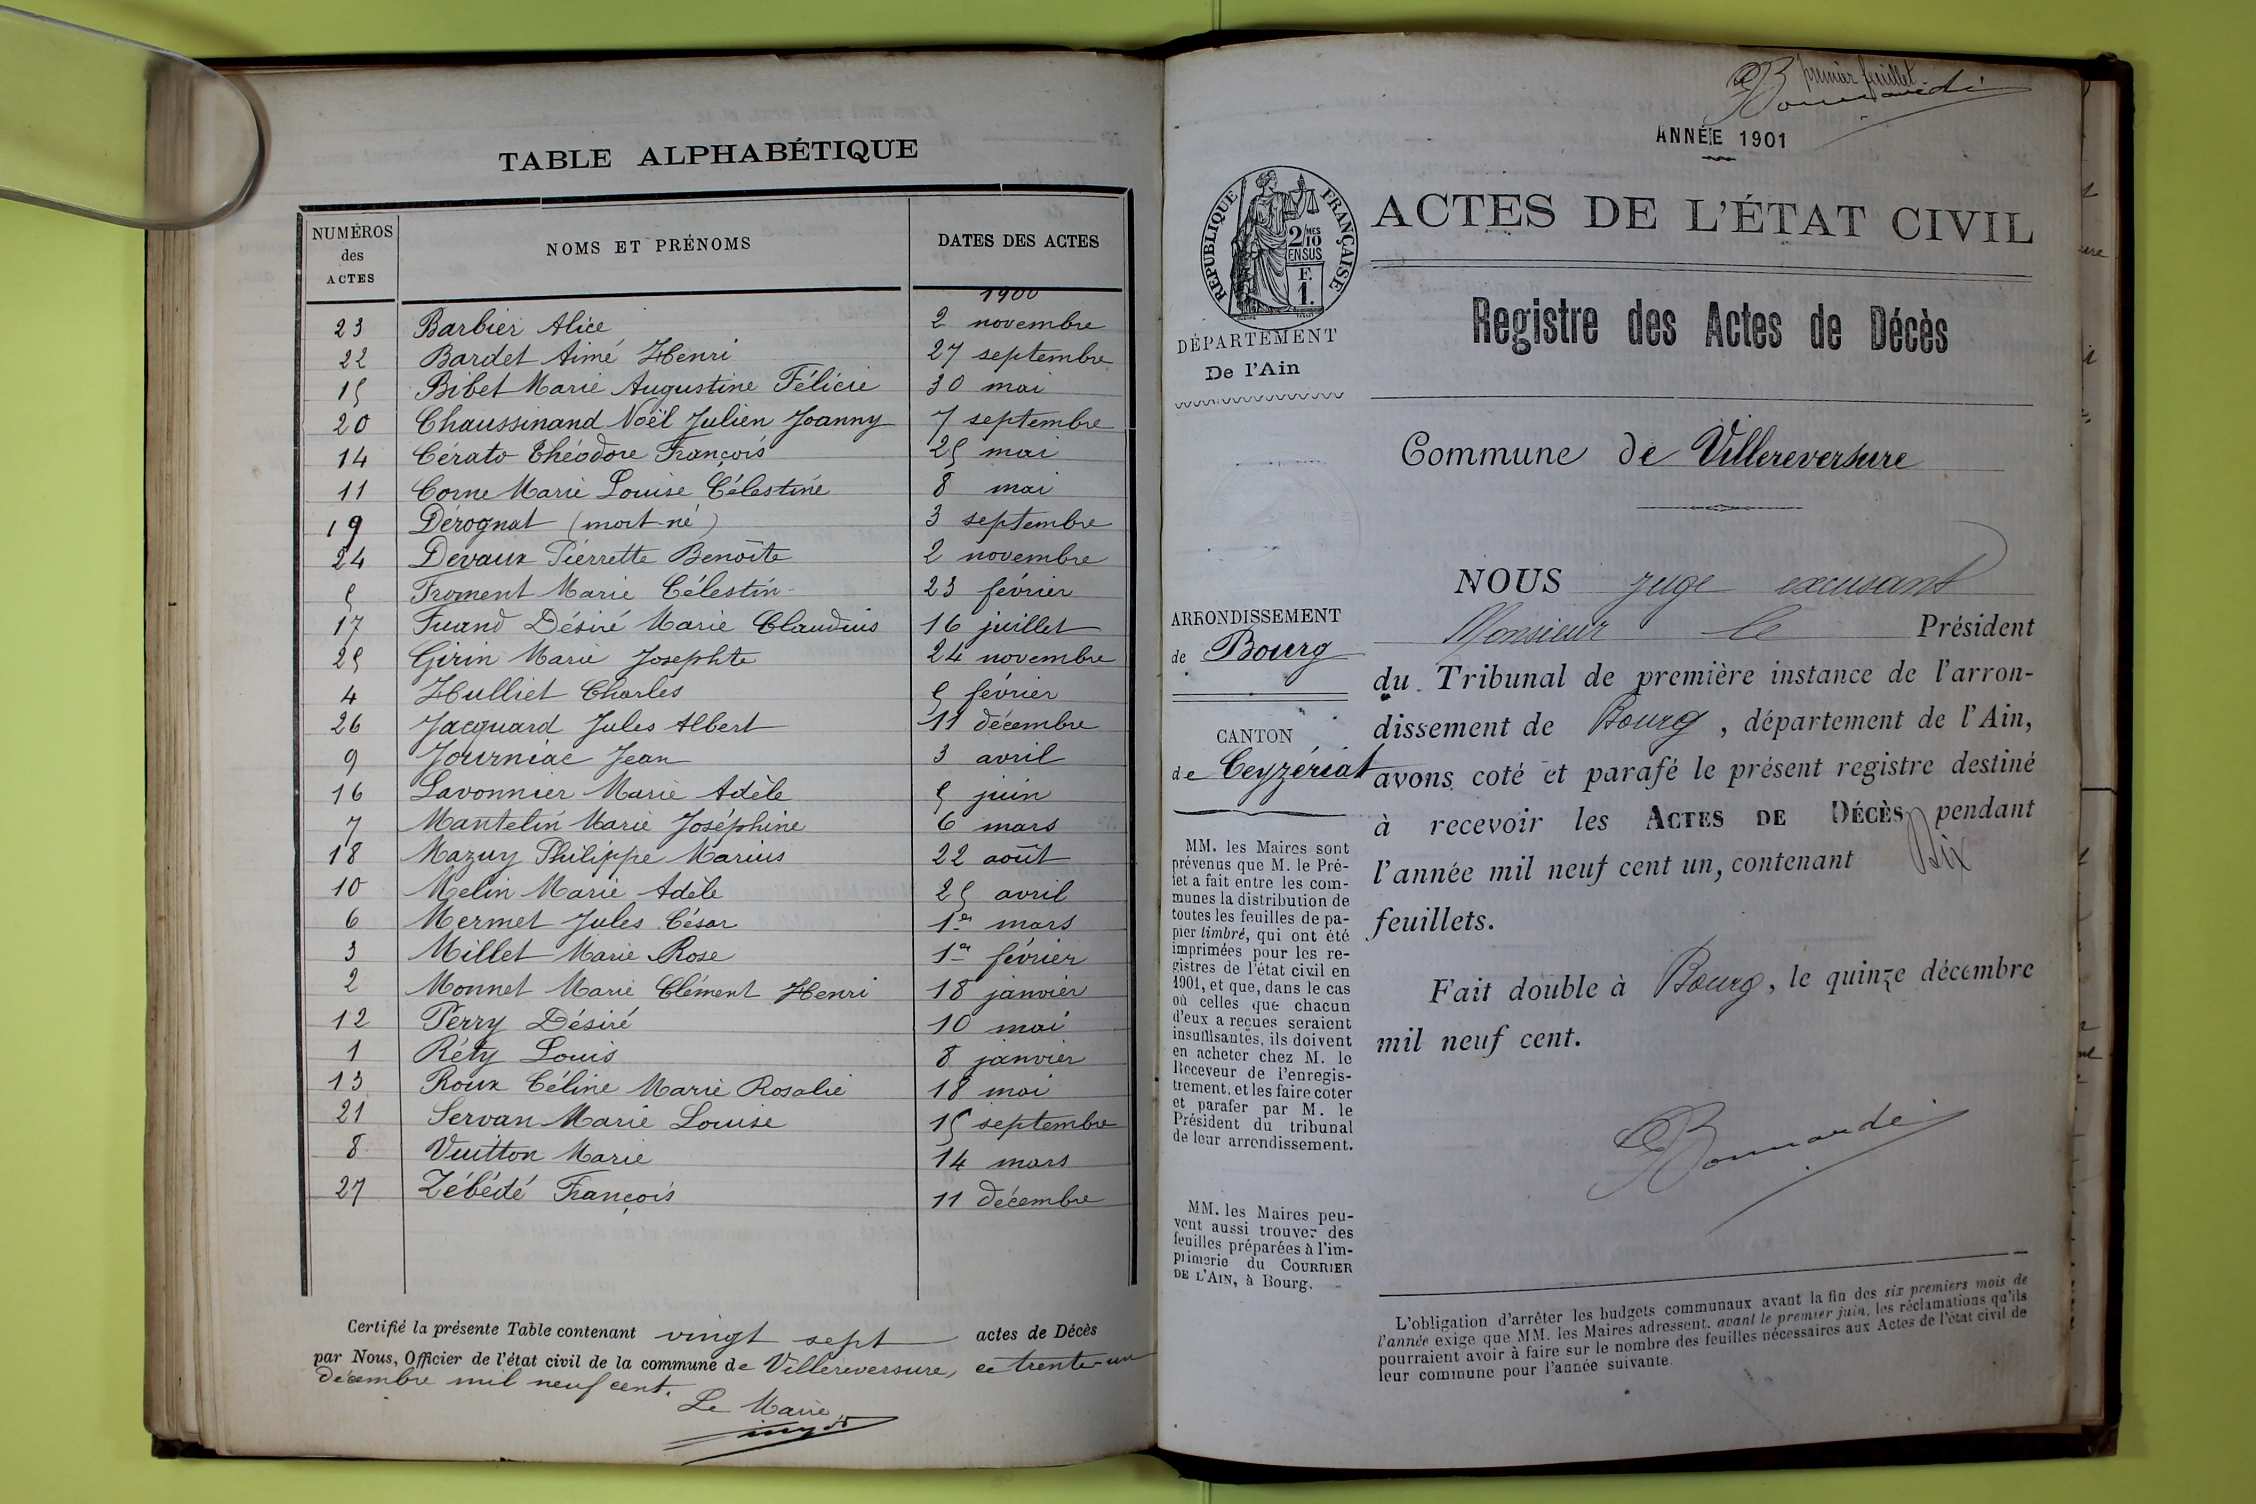 TABLE ALPHABÉTIQUE
NUMÉROS des ACTES NOMS ET PRÉNOMS DATES DES ACTES
1900
23 Barbier Alice 2 novembre
22 Bardet Aimé Henri 27 septembre
15 Bibet Marie Augustine Félicie 30 mai
20 Chaussinand Noël Julien Joanny 7 septembre
14 Cérato Théodore François 25 mai
11 Corne Marie Louise Célestine 8 mai
19 Dérognat (mort-né) 3 septembre
24 Devaux Pierrette Benoîte 2 novembre
5 Froment Marie Célestin 23 février
17 Fuand Désiré Marie Claudius 16 juillet
25 Girin Marie Josephte 24 novembre
4 Hulliet Charles 5 février
26 Jacquard Jules Albert 11 décembre
9 Journiac Jean 3 avril
16 Lavonnier Marie Adèle 5 juin
7 Mantelin Marie Joséphine 6 mars
18 Mazuy Philippe Marius 22 août
10 Melin Marie Adèle 25 avril
6 Mermet Jules César 1er mars
3 Millet Marie Rose 1er février
2 Monnet Marie Clément Henri 18 janvier
12 Perry Désiré 10 mai
1 Réty Louis 8 janvier
13 Roux Céline Marie Rosalie 18 mai
21 Servan Marie Louise 15 septembre
8 Vuitton Marie 14 mars
27 Zébédé François 11 décembre
Certifié la présente Table contenant vingt sept actes de Décès
par Nous, Officier de l'état civil de la commune de Villereversure, ce trente-un
décembre mil neuf cent.
Le Maire
premier feuillet
ANNÉE 1901
RÉPUBLIQUE FRANÇAISE
2/10MES
EN SUS
F.
1.
ACTES DE L'ÉTAT CIVIL
DÉPARTEMENT
De l'Ain
Registre des Actes de Décès
Commune de Villereversure
ARRONDISSEMENT
de Bourg
CANTON
de Ceyzériat
MM. les Maires sont
prévenus que M. le Pré-
fet a fait entre les com-
munes la distribution de
toutes les feuilles de pa-
pier timbré, qui ont été
imprimées pour les re-
gistres de l'état civil en
1901, et que, dans le cas
où celles que chacun
d'eux a reçues seraient
insuffisantes, ils doivent
en acheter chez M. le
Receveur de l'enregis-
trement, et les faire coter
et parafer par M. le
Président du tribunal
de leur arrondissement.
MM. les Maires peu-
vent aussi trouver des
feuilles préparées à l'im-
primerie du COURRIER
DE L'AIN, à Bourg.
NOUS juge excusant
Monsieur le Président
du Tribunal de première instance de l'arron-
dissement de Bourg, département de l'Ain,
avons coté et parafé le présent registre destiné
à recevoir les ACTES DE DÉCÈS pendant
l'année mil neuf cent un, contenant Dix
feuillets.
Fait double à Bourg, le quinze décembre
mil neuf cent.
L'obligation d'arrêter les budgets communaux avant la fin des six premiers mois de
l'année exige que MM. les Maires adressent, avant le premier juin, les réclamations qu'ils
pourraient avoir à faire sur le nombre des feuilles nécessaires aux Actes de l'état civil de
leur commune pour l'année suivante.